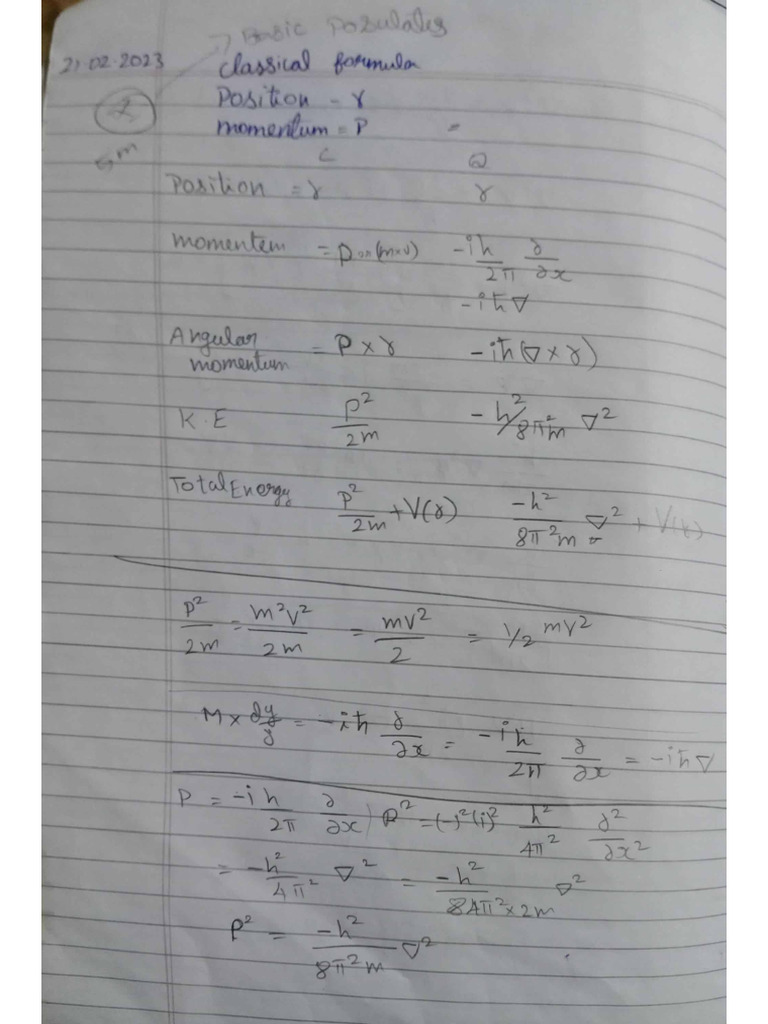 → Basic Posulates
21.02.2023 classical formula
2 Position - r
momentum = P =
5m
C Q
Position = r r
momentem = p or (m×v) -ih/2π ∂/∂x
-iℏ∇
Angular momentum = P × r -iℏ(∇ × r)
K.E P²/2m -h²/8π²m ∇²
Total Energy P²/2m + V(r) -h²/8π²m ∇² + V(r)
P²/2m = m²v²/2m = mv²/2 = 1/2 mv²
M × dy/y = -iℏ ∂/∂x = -iℏ/2π ∂/∂x = -iℏ∇
P = -ih/2π ∂/∂x) P² = (-)²(i)² h²/4π² ∂²/∂x²
= -h²/4π² ∇² = -h²/84π²×2m ∇²
P² = -h²/8π²m ∇²